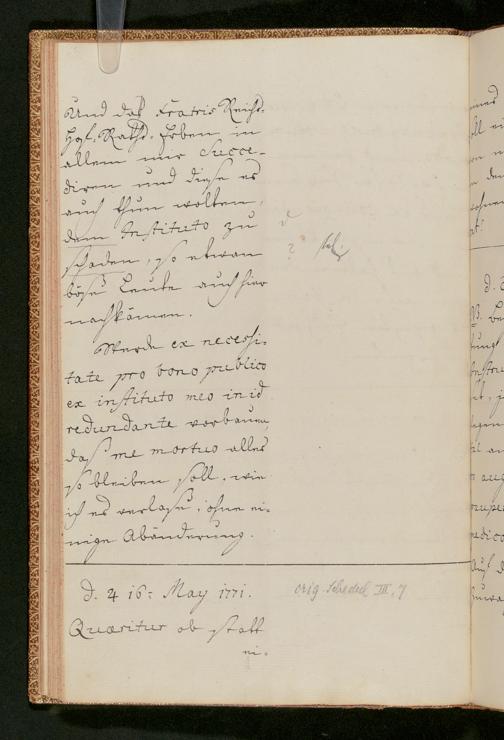 Und daß Fratris Reichs-
Hof-Raths-Erben in
allem mir Succe-
diren und diese es
auch thun wolten,
dem Instituto zu
schaden, so etwan
böse Leute auch hier
nachkämen.
Werde ex necessi-
tate pro bono publico
ex instituto meo in id
redundante vorbauen,
daß me mortuo alles
so bleiben soll, wie
ich es verlaße, ohne ei-
nige Abänderung.
d. 4 16: May 1771.
orig. Schedul III, 7
Quaeritur ob statt
ei-